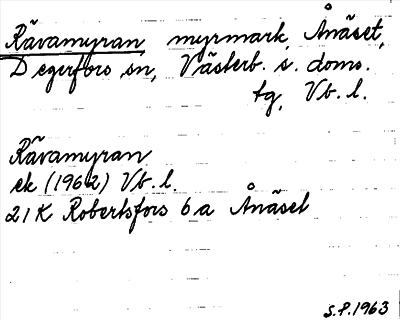 Rävamyran myrmark, Ånäset,
Degerfors sn, Västerb. s. doms.
tg, Vb. l.
Rävamyran
ek (1962) Vb. l.
21K Robertsfors 6a Ånäset
S.P. 1963